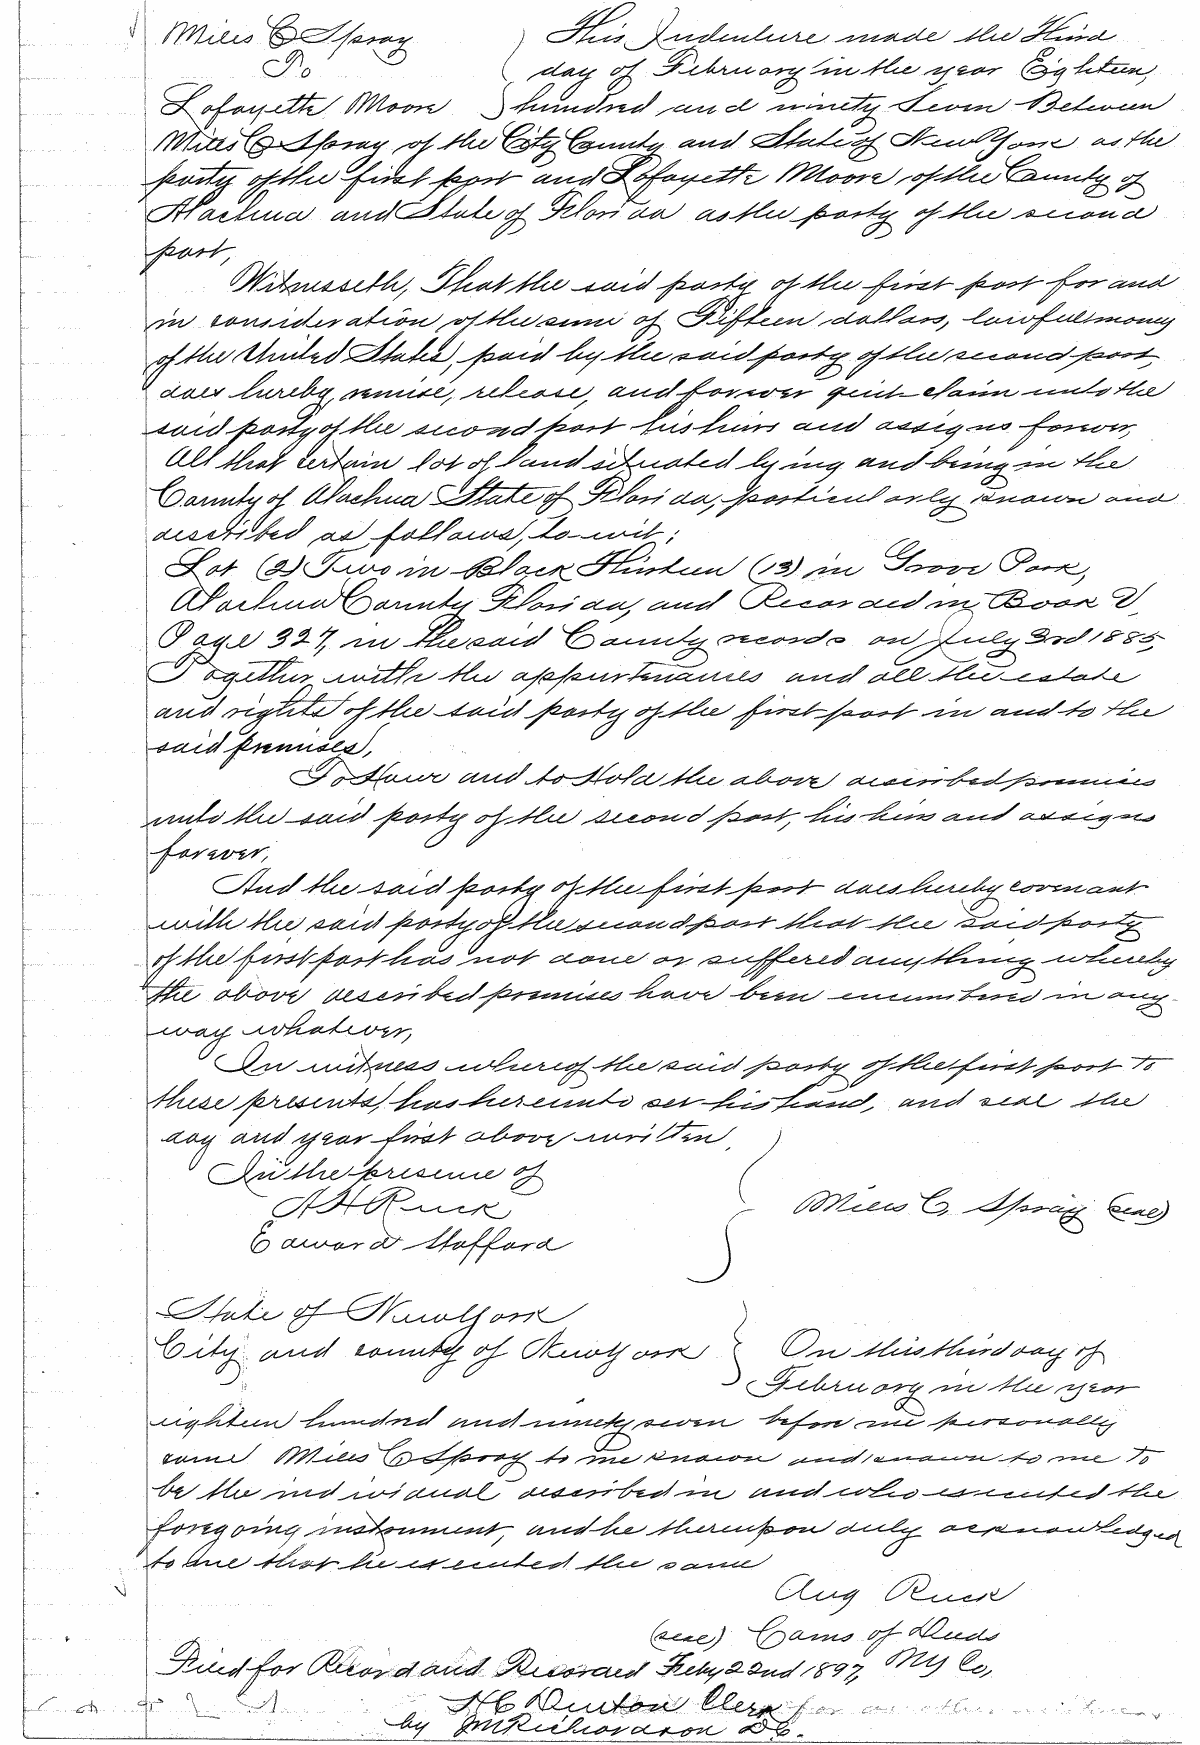 Miles C Spray
To
Lafayette Moore
This Indenture made the Third
day of February in the year Eighteen
hundred and ninety Seven Between
Miles C Spray of the City County and State of New York as the
party of the first part and Lafayette Moore of the County of
Alachua and State of Florida as the party of the second
part,
Witnesseth, That the said party of the first part for and
in consideration of the sum of Fifteen dollars, lawful money
of the United States, paid by the said party of the second part,
does hereby, remise, release, and forever quit-claim unto the
said party of the second part his heirs and assigns forever,
All that certain lot of land situated lying and being in the
County of Alachua State of Florida, particularly known and
described as follows, to-wit;
Lot (2) Two in Block Thirteen (13) in Grove Park,
Alachua County Florida, and Recorded in Book V,
Page 327, in the said County records on July 3rd 1885,
Together with the appurtenances and all the estate
and rights of the said party of the first part in and to the
said premises,
To Have and to Hold the above described premises
unto the said party of the second part, his heirs and assigns
forever,
And the said party of the first part does hereby covenant
with the said party of the second part that the said party
of the first part has not done or suffered anything whereby
the above described premises have been encumbered in any
way whatever,
In witness whereof the said party of the first part to
these presents, has hereunto set his hand, and seal the
day and year first above written,
In the presence of
A H Ruck
Edward Stafford
Miles C, Spray (seal)
State of New York
City and county of New York
On this third day of
February in the year
eighteen hundred and ninety seven before me personally
came Miles C Spray to me known and known to me to
be the individual described in and who executed the
foregoing instrument, and he thereupon duly acknowledged
to me that he executed the same
Aug Ruck
(seal) Coms of Deeds
Filed for Record and Recorded Feby 22nd 1897, NY Co,
H C Denton Clerk
by JM Richardson DC.